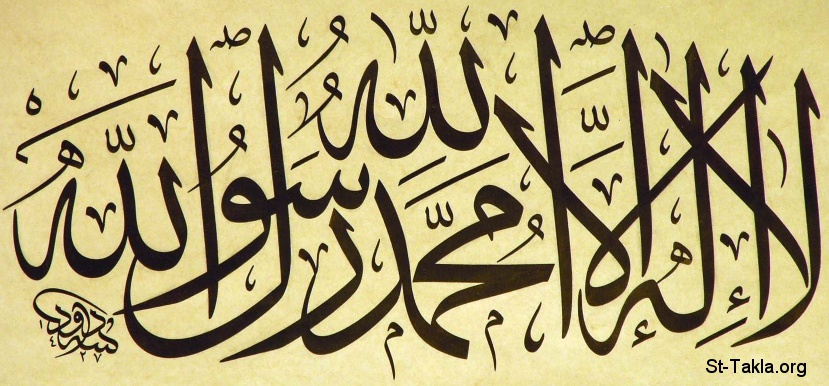 لا إله إلا الله محمد رسول الله
St-Takla.org